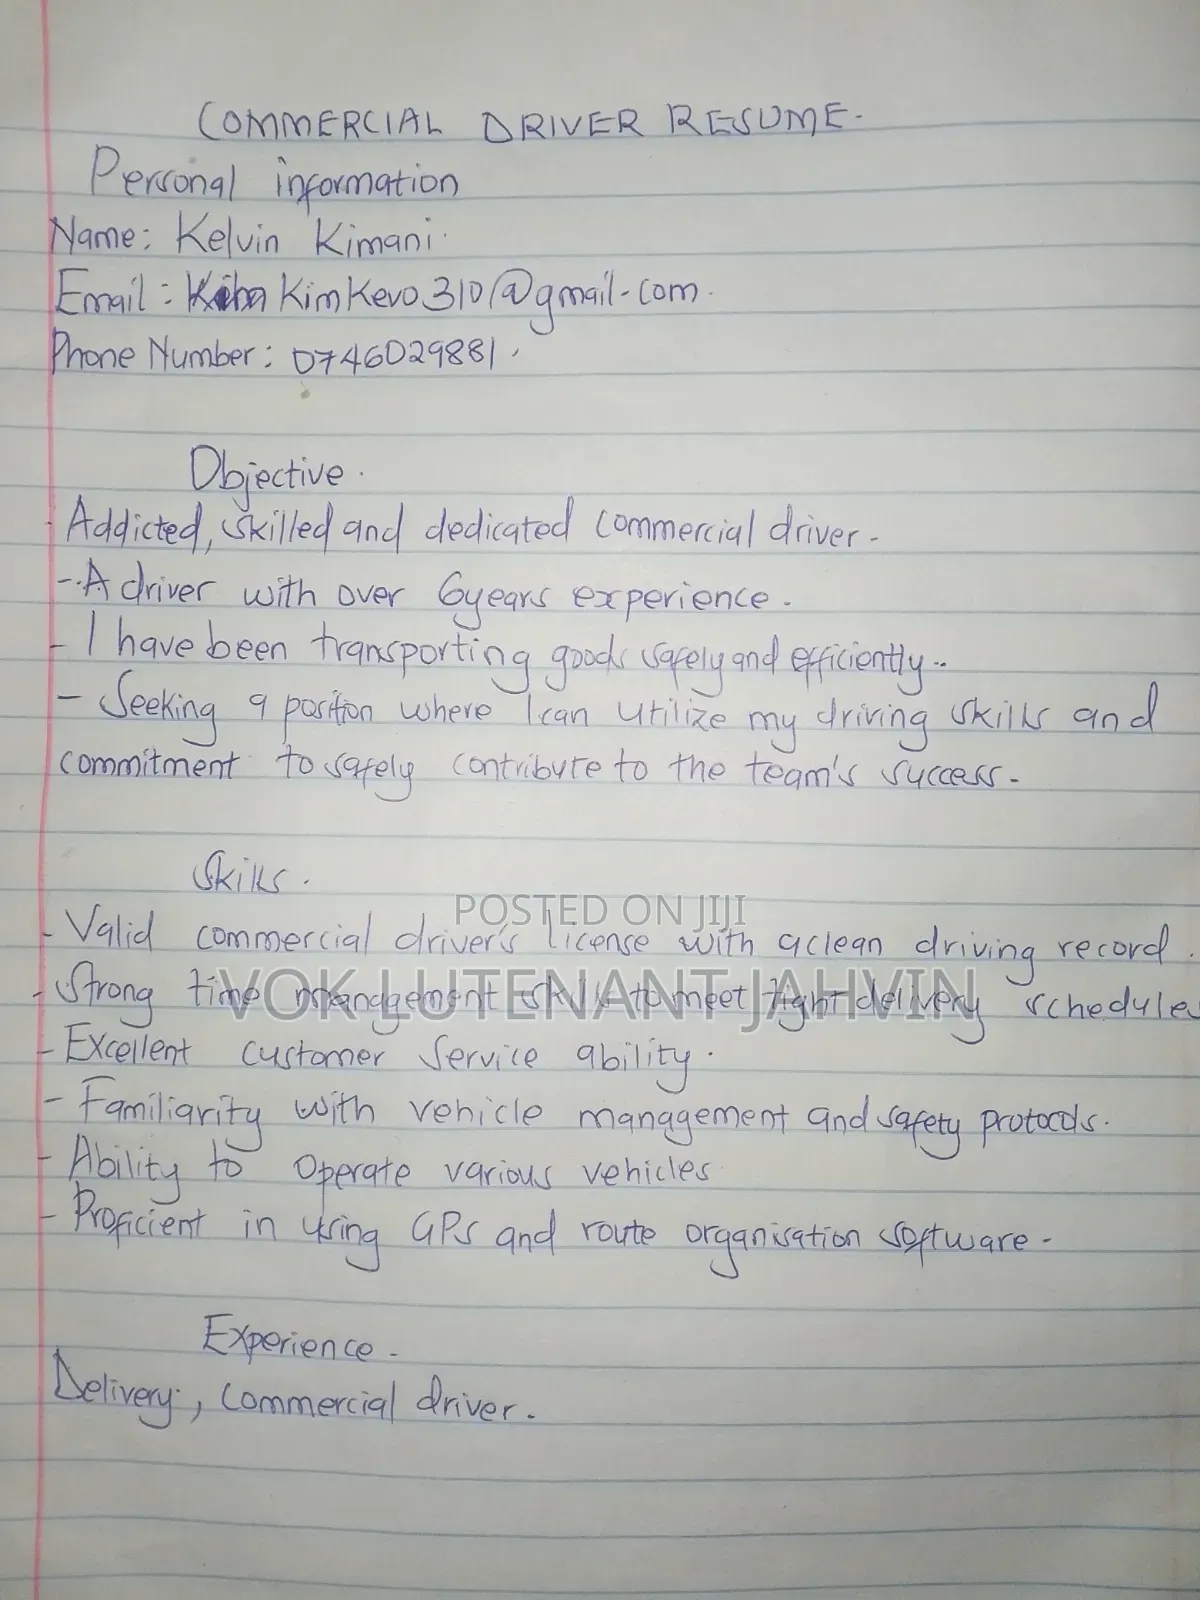 COMMERCIAL DRIVER RESUME.
Personal information
Name: Kelvin Kimani.
Email: KimKevo310@gmail.com.
Phone Number: 0746029881.
Objective.
Addicted, skilled and dedicated commercial driver.
- A driver with over 6years experience.
- I have been transporting goods safely and efficiently..
- Seeking a position where I can utilize my driving skills and
commitment to safely contribute to the team's success.
Skills.
POSTED ON JIJI
- Valid commercial driver's license with a clean driving record.
VOK LUTENANT JAHVIN
- Strong time management skills to meet tight delivery schedules
- Excellent customer service ability.
- Familiarity with vehicle management and safety protocols.
- Ability to operate various vehicles
- Proficient in using GPS and route organisation software.
Experience.
Delivery, commercial driver.